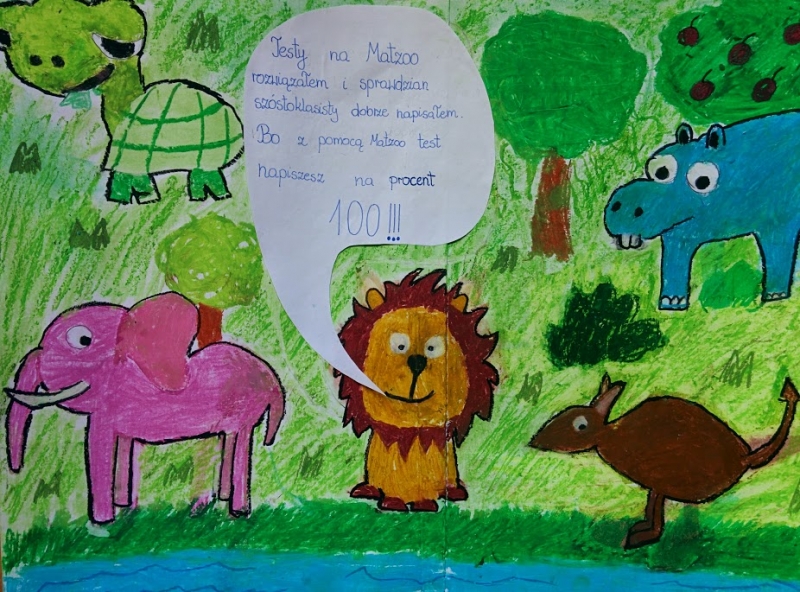 Testy na Matzoo
rozwiązałem i sprawdzian
szóstoklasisty dobrze napisałem.
Bo z pomocą Matzoo test
napiszesz na procent
100!!!